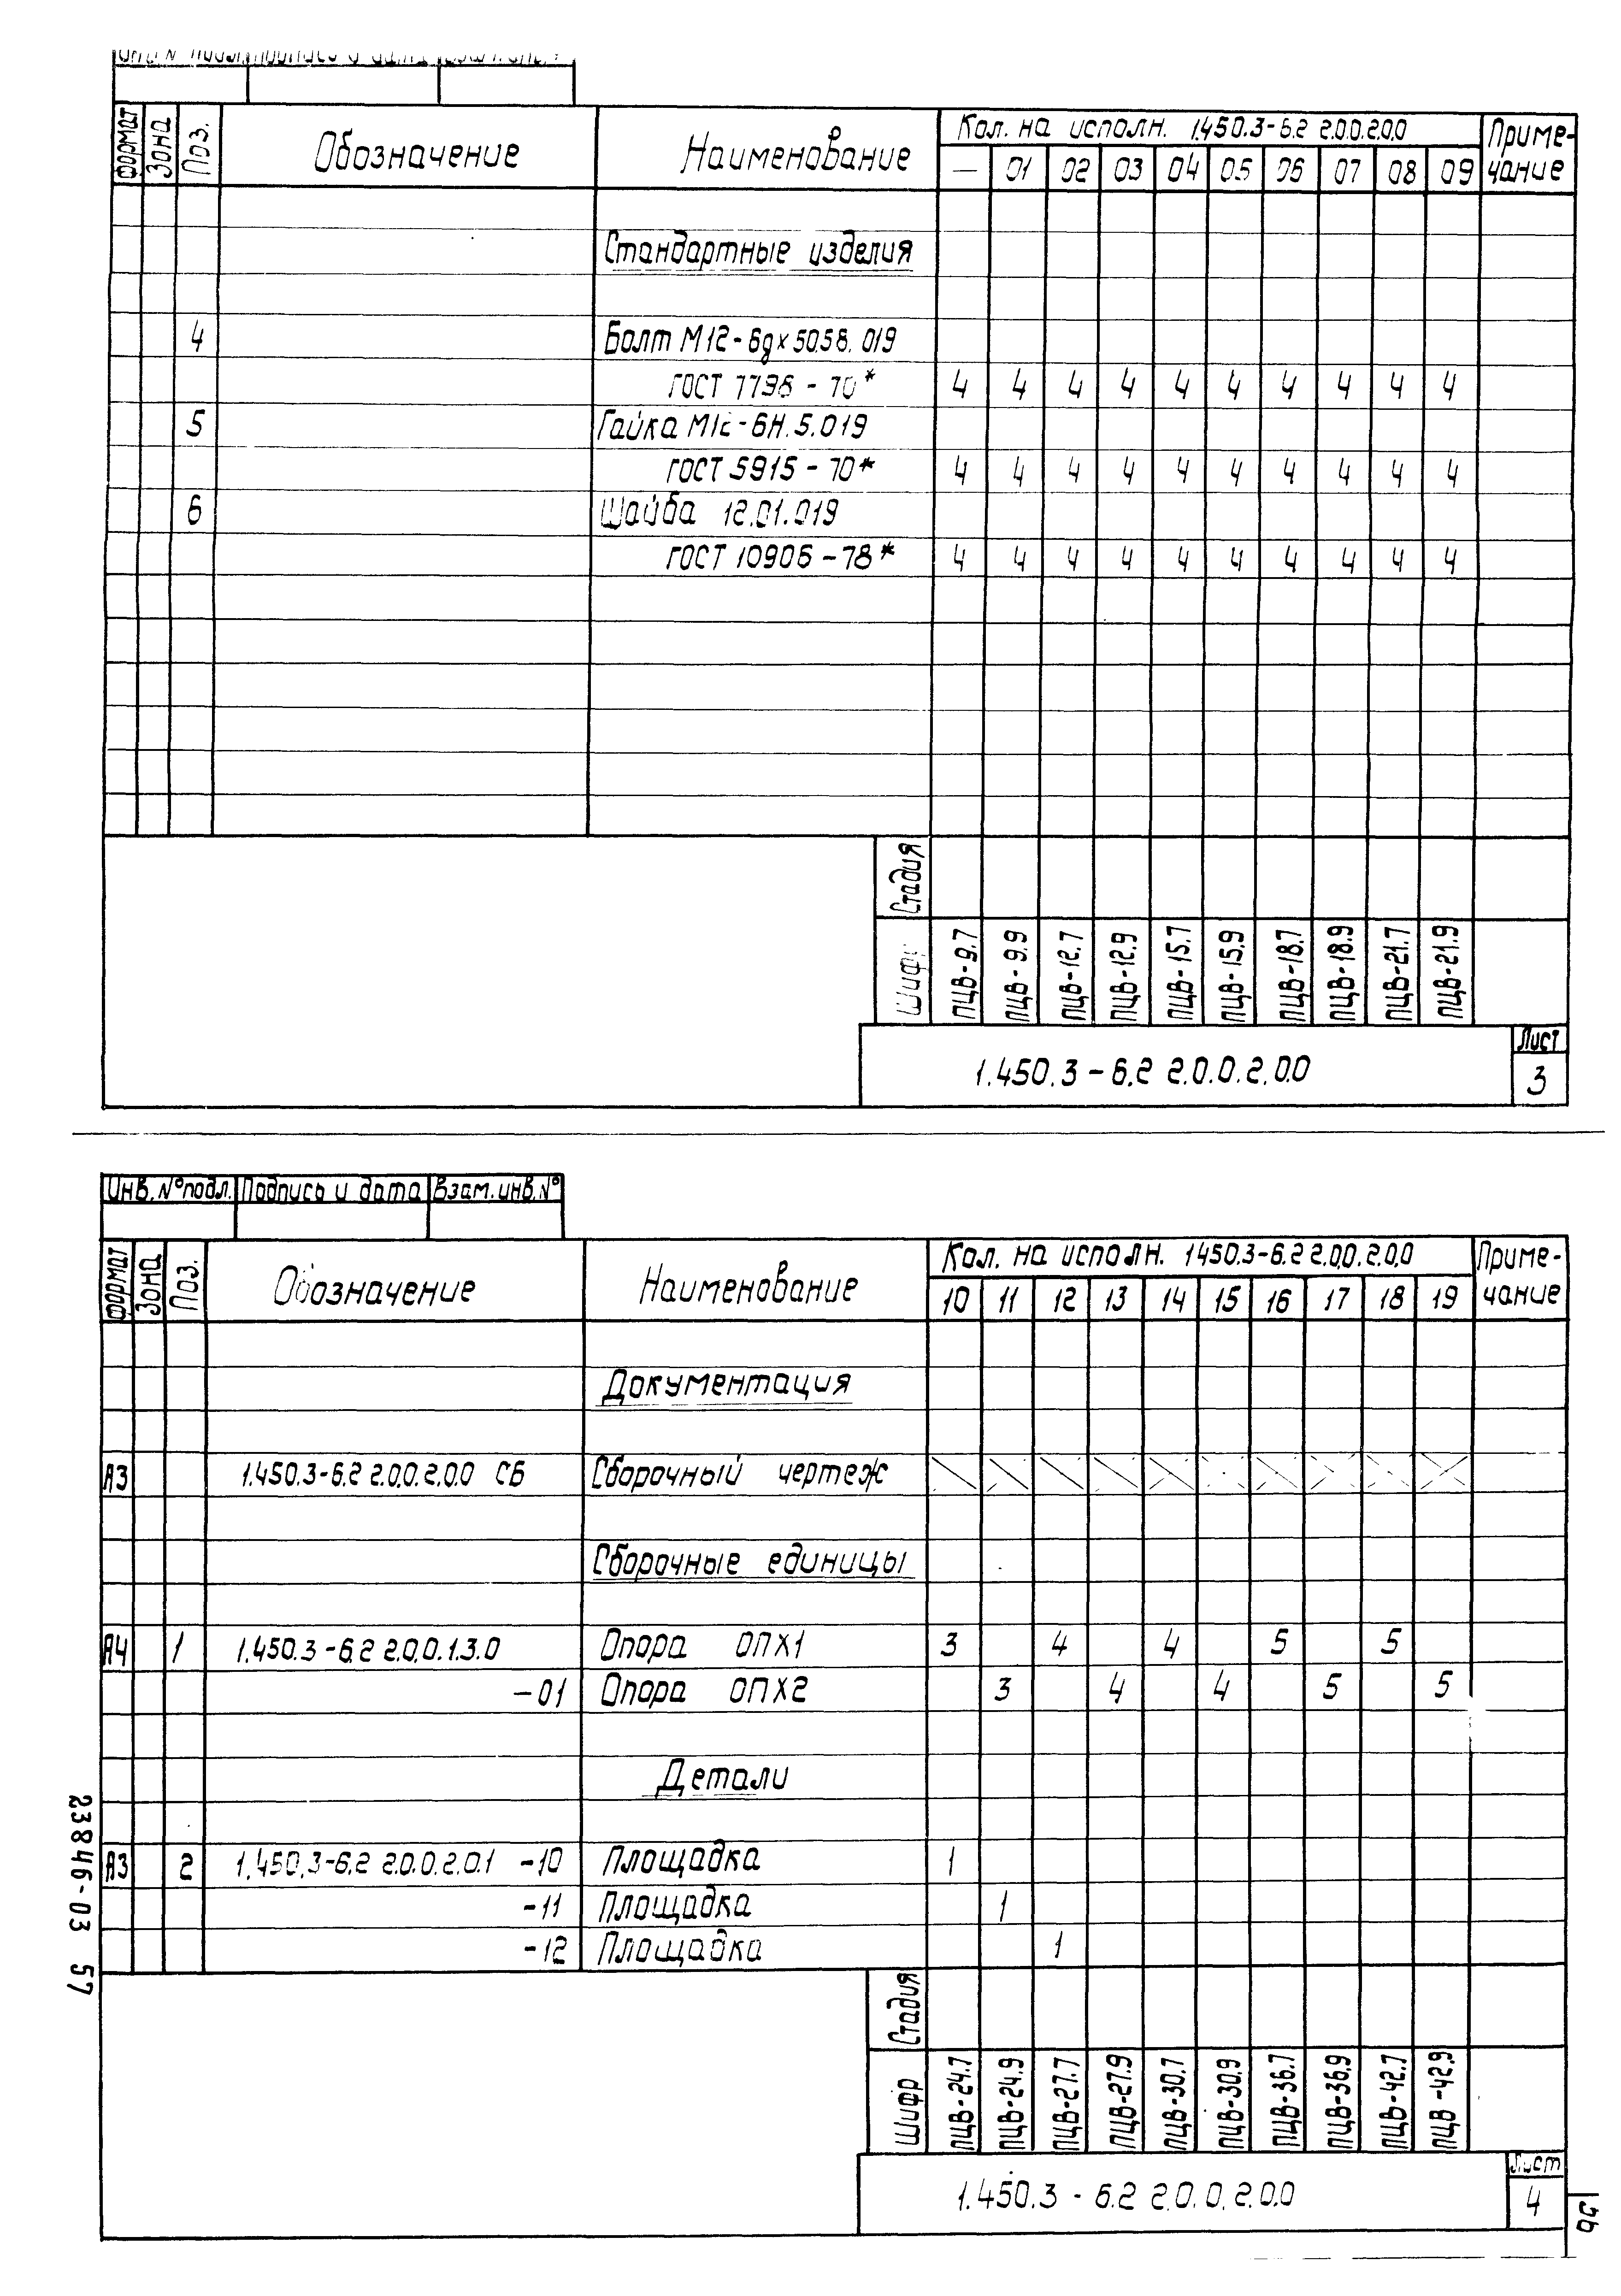 Формат Зона Поз. Обозначение Наименование Кол. на исполн. 1.450.3-6.2 2.0.0.2.0.0 Приме-чание
— 01 02 03 04 05 06 07 08 09
Стандартные изделия
4 Болт М12-6gx50.58.019
ГОСТ 7798-70* 4 4 4 4 4 4 4 4 4 4
5 Гайка М12-6Н.5.019
ГОСТ 5915-70* 4 4 4 4 4 4 4 4 4 4
6 Шайба 12.01.019
ГОСТ 10906-78* 4 4 4 4 4 4 4 4 4 4
Стадия
Шифр ПЦВ-9.7 ПЦВ-9.9 ПЦВ-12.7 ПЦВ-12.9 ПЦВ-15.7 ПЦВ-15.9 ПЦВ-18.7 ПЦВ-18.9 ПЦВ-21.7 ПЦВ-21.9
1.450.3-6.2 2.0.0.2.0.0 Лист
3
Инв.№подл. Подпись и дата Взам.инв.№
Формат Зона Поз. Обозначение Наименование Кол. на исполн. 1450.3-6.2 2.0.0.2.0.0 Приме-чание
10 11 12 13 14 15 16 17 18 19
Документация
А3 1.450.3-6.2 2.0.0.2.0.0 СБ Сборочный чертеж
Сборочные единицы
А4 1 1.450.3-6.2 2.0.0.1.3.0 Опора ОПХ1 3 4 4 5 5
-01 Опора ОПХ2 3 4 4 5 5
Детали
А3 2 1.450.3-6.2 2.0.0.2.0.1 -10 Площадка 1
-11 Площадка 1
-12 Площадка 1
Стадия
Шифр ПЦВ-24.7 ПЦВ-24.9 ПЦВ-27.7 ПЦВ-27.9 ПЦВ-30.7 ПЦВ-30.9 ПЦВ-36.7 ПЦВ-36.9 ПЦВ-42.7 ПЦВ-42.9
1.450.3-6.2 2.0.0.2.0.0 Лист
4
23846-03 57
56